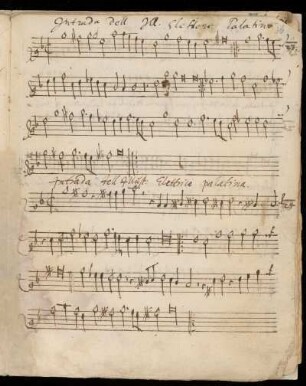 Intrada dell Ill Elettore Palatino
Intrada dell Elettrice palatina.